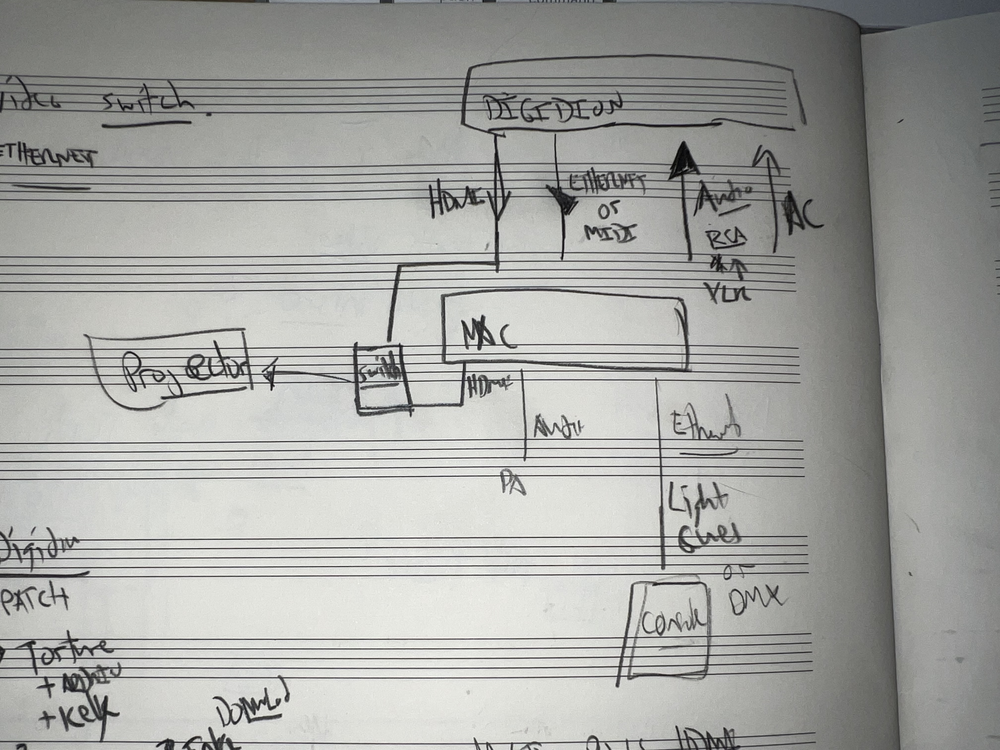 video switch.
ETHERNET
DIGIDION
HDMI
ETHERNET
or
MIDI
Audio
RCA
XLR
AC
MAC
Projector
switch
HDMI
Audio
PA
Ethernet
Light
Cues
or
DMX
Console
PATCH
Torture
+ Kelly
HDMI